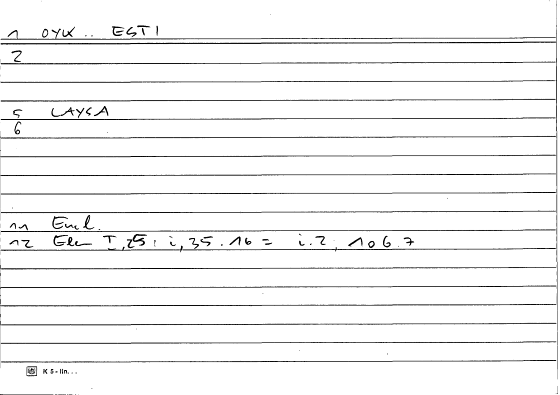 1 OYK .. ESTI
2
5 LAYSA
6
11 Eucl.
12 Elem I,25 : i,35.16 = i.2, 106.7
K 5 - lin...